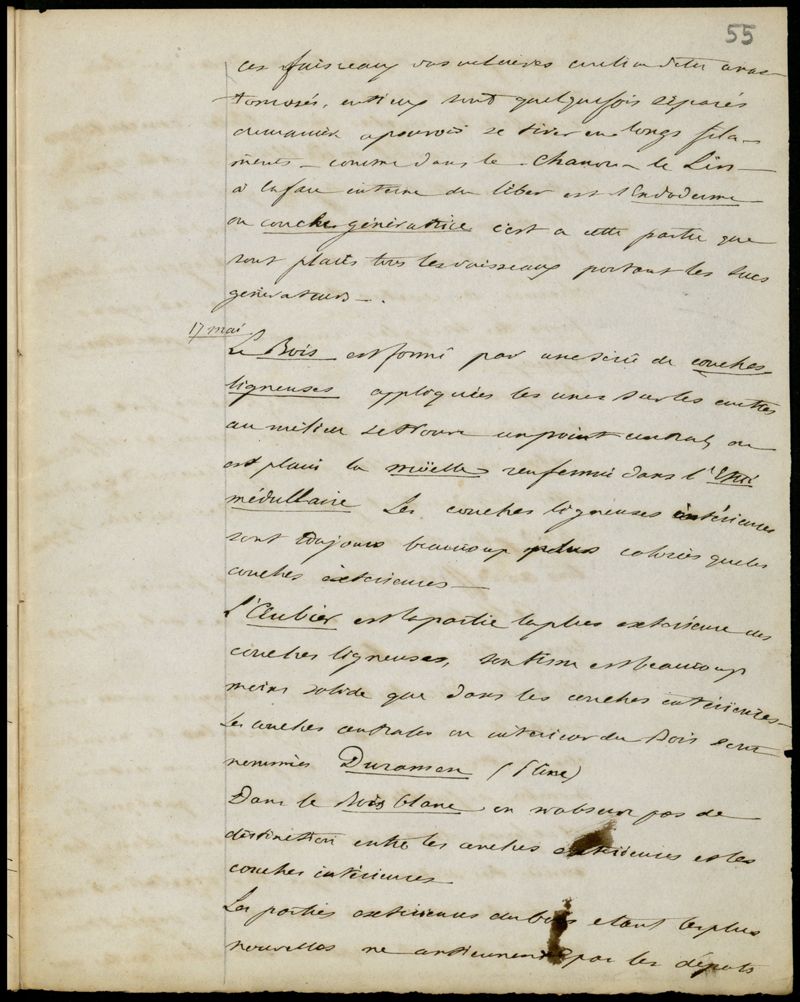 55
ces faisceaux vasculaires au lieu d'etre anas-
tomosés, entieux sont quelquefois séparés
de maniere a pouvoir se tirer en longs fila-
ments - comme dans le Chanvre - le Lin -
à la face interne du liber est l'Endoderme
ou couche génératrice c'est a cette partie que
sont placés tous les vaisseaux portant les sucs
générateurs - .
17 mai
Le Bois est formé par une serie de couches
ligneuses appliquées les unes sur les autres
au milieu se trouve un point central ou
est placée la moëlle renfermée dans l'Etui
médullaire Les couches ligneuses intérieures
sont toujours beaucoup plus colorées que les
couches exterieures -
L'Aubier est la partie la plus exterieure des
couches ligneuses, son tissu est beaucoup
moins solide que dans les couches intérieures -
Les couches centrales ou interieur du Bois sont
nommées Duramen (Pline)
Dans le Bois blanc on n'observe pas de
distinction entre les couches extérieures et les
couches intérieures
Les parties exterieures du bois etant les plus
nouvelles ne contiennent pas les dépots